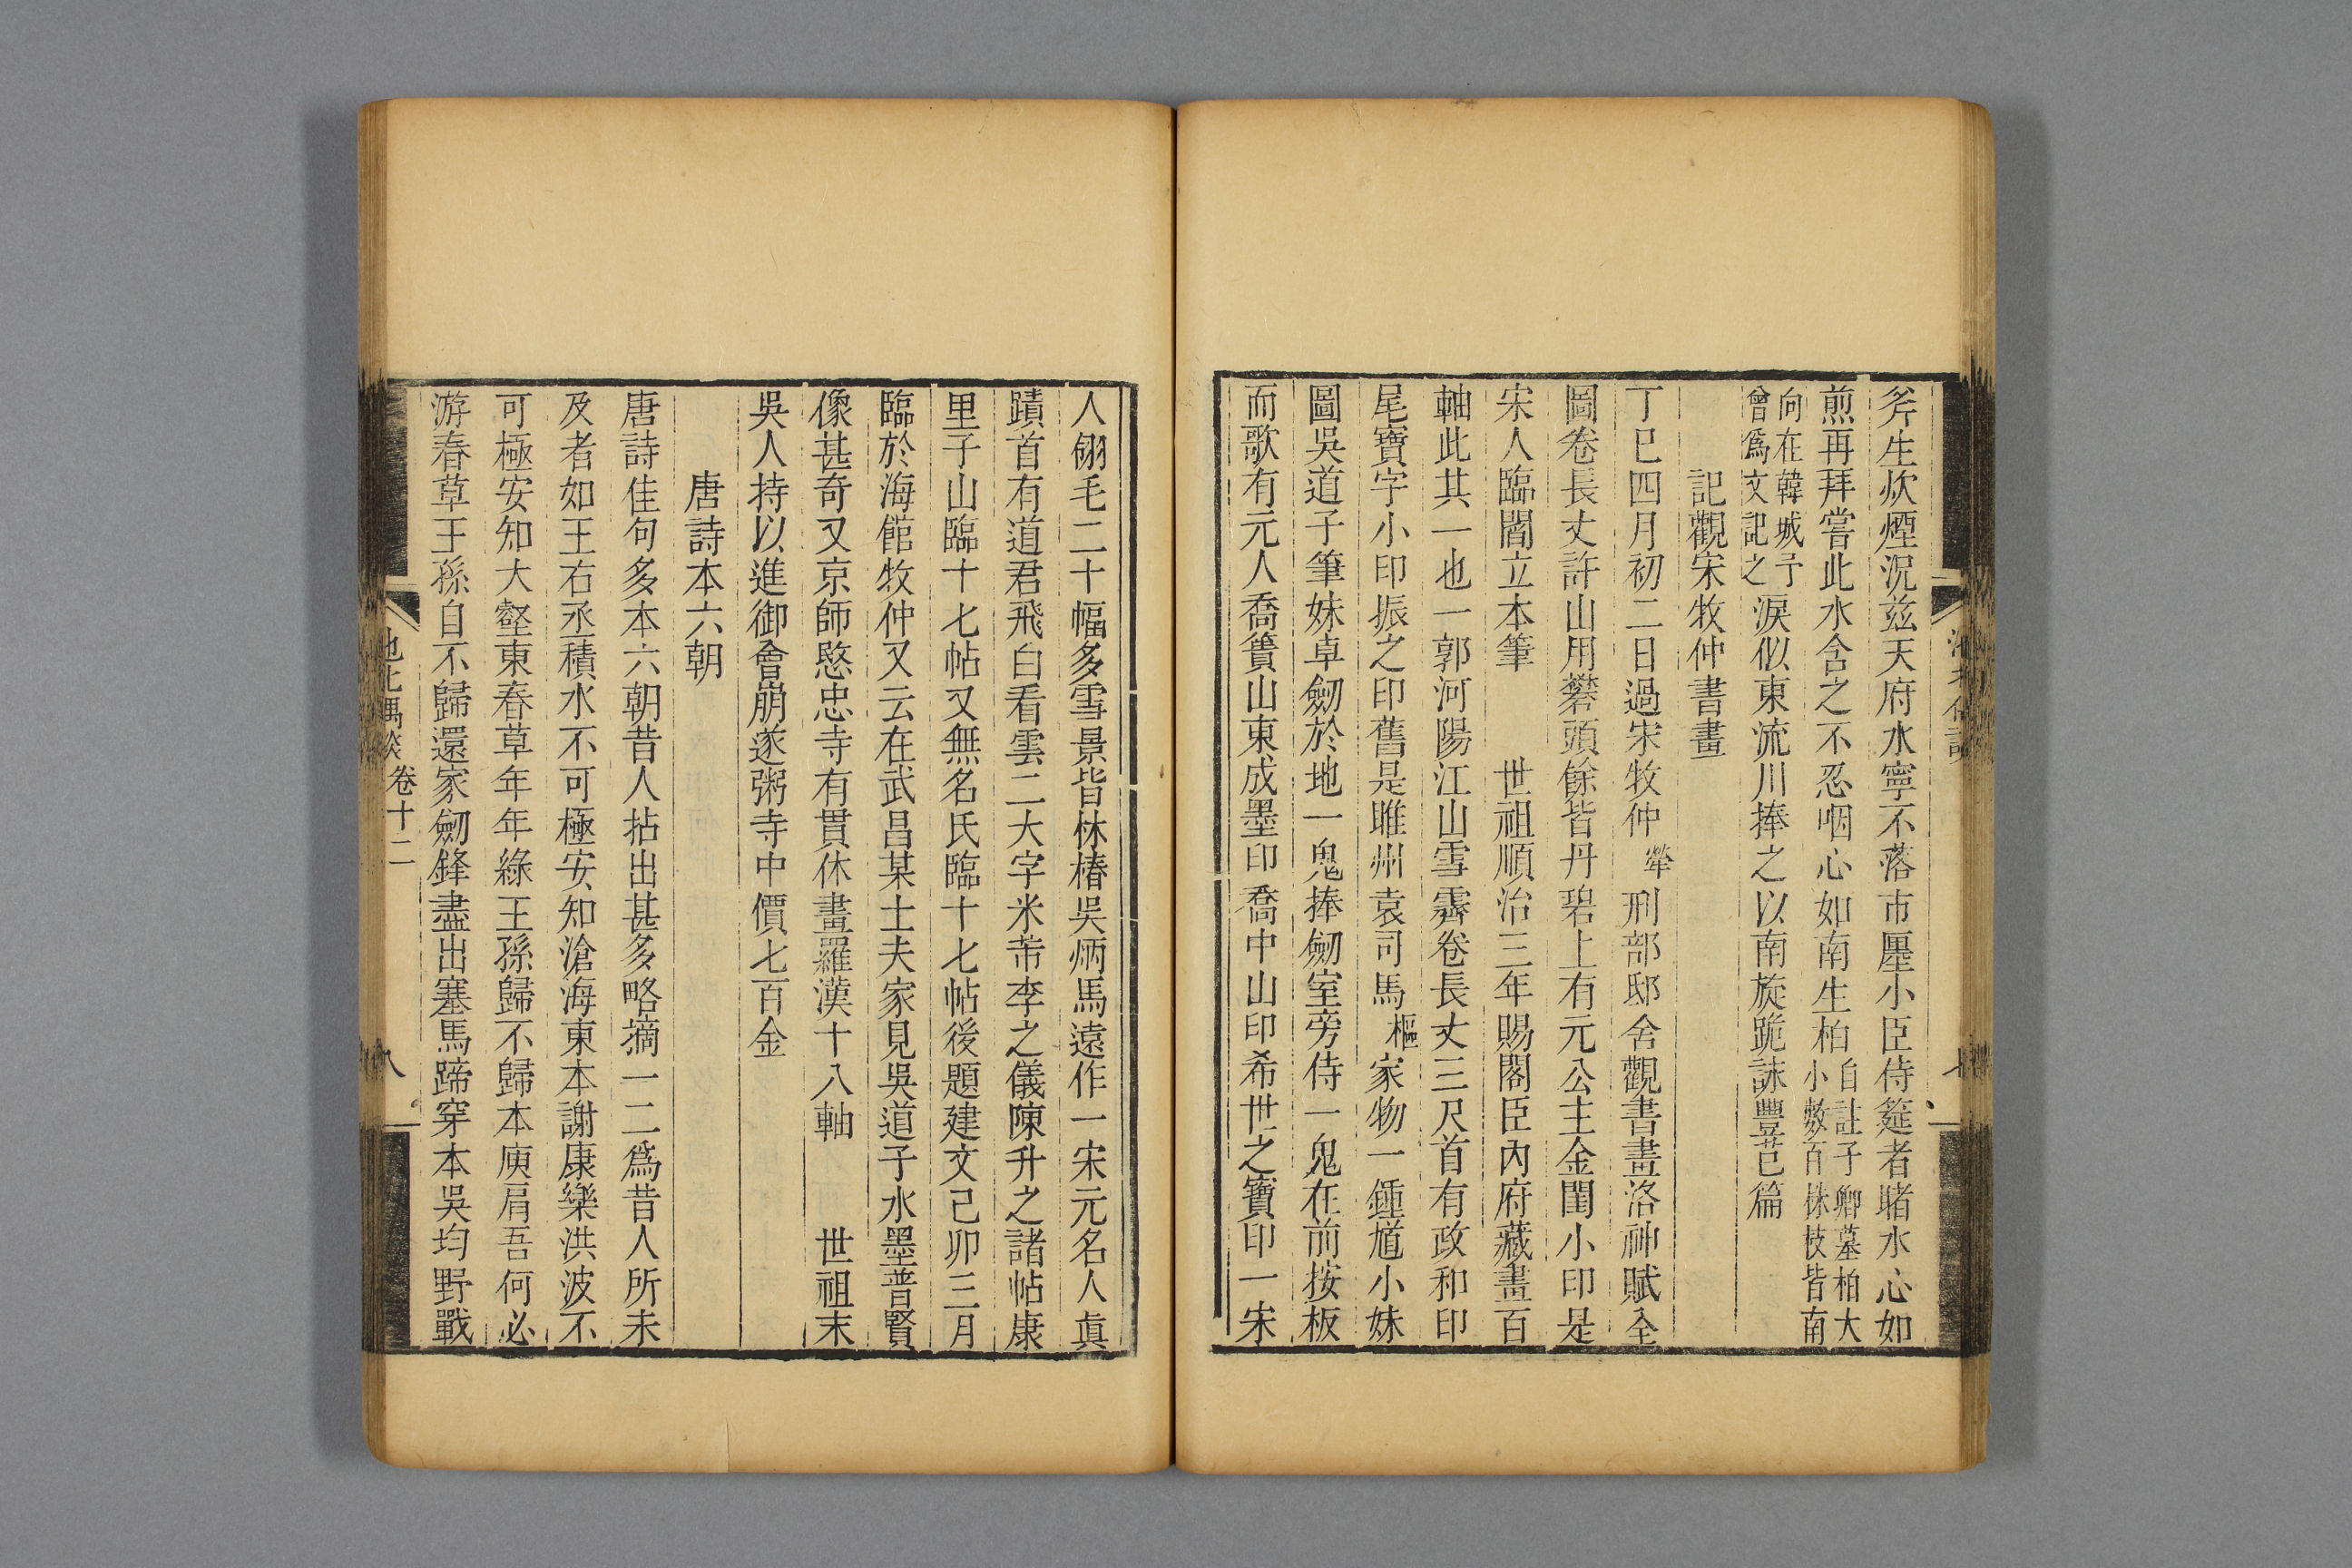 斧生炊煙況茲天府水寧不落市廛小臣侍筵者賭水心如
煎再拜嘗此水含之不忍咽心如南生柏自註子卿墓柏大小數百株枝皆南
向在韓城予曾爲文記之淚似東流川捧之以南旋跪誄豐芑篇
記觀宋牧仲書畫
丁巳四月初二日過宋牧仲犖刑部邸舍觀書畫洛神賦全
圖卷長丈許山用礬頭餘皆丹碧上有元公主金閨小印是
宋人臨閻立本筆 世祖順治三年賜閣臣內府藏畫百
軸此其一也一郭河陽江山雪霽卷長丈三尺首有政和印
尾寶字小印振之印舊是睢州袁司馬樞家物一鍾馗小妹
圖吳道子筆妹卓劒於地一鬼捧劒室旁侍一鬼在前按板
而歌有元人喬簣山東成墨印喬中山印希世之寶印一宋
人翎毛二十幅多雪景皆林椿吳炳馬遠作一宋元名人眞
蹟首有道君飛白看雲二大字米芾李之儀陳升之諸帖康
里子山臨十七帖又無名氏臨十七帖後題建文己卯三月
臨於海館牧仲又云在武昌某士夫家見吳道子水墨普賢
像甚奇又京師愍忠寺有貫休畫羅漢十八軸 世祖末
吳人持以進御會崩遂粥寺中價七百金
唐詩本六朝
唐詩佳句多本六朝昔人拈出甚多略摘一二爲昔人所未
及者如王右丞積水不可極安知滄海東本謝康樂洪波不
可極安知大壑東春草年年綠王孫歸不歸本庾肩吾何必
游春草王孫自不歸還家劒鋒盡出塞馬蹄穿本吳均野戰
池北偶談 卷十二 八